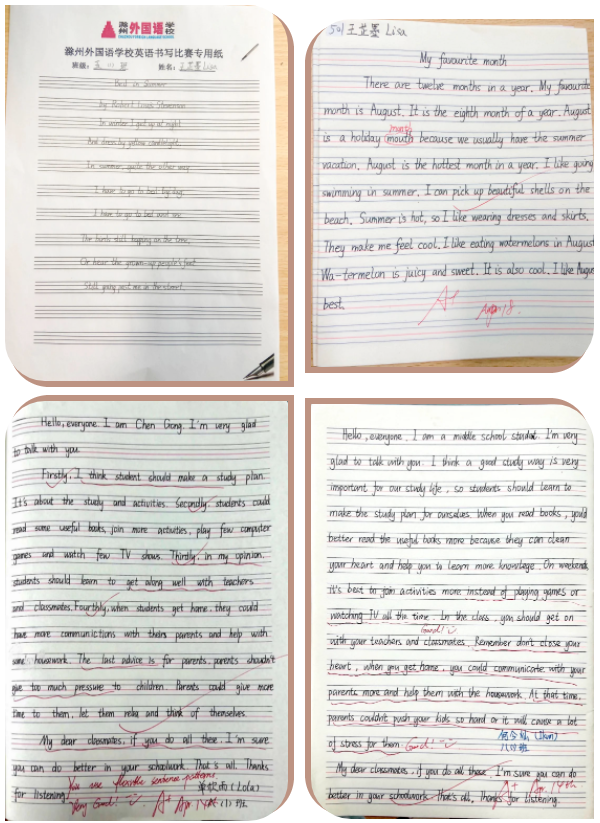 滁州外国语学校
滁州外国语学校英语书写比赛专用纸
班级: 姓名: 王艺墨 Lisa
Bed in Summer
By Robert Louis Stevenson
In winter I get up at night
And dress by yellow candlelight.
In summer, quite the other way,
I have to go to bed by day.
I have to go to bed and see
The birds still hopping on the tree,
Or hear the grown-up people's feet
Still going past me in the street.
501 王艺墨 Lisa
My favourite month
There are twelve months in a year. My favourite
month is August. It is the eighth month of a year. August
month
is a holiday mouth because we usually have the summer
vacation. August is the hottest month in a year. I like going
swimming in summer. I can pick up beautiful shells on the
beach. Summer is hot, so I like wearing dresses and skirts.
They make me feel cool. I like eating watermelons in August
Wa-termelon is juicy and sweet. It is also cool. I like Augus
best.
A+ Apr. 18.
Hello, everyone. I am Chen Gong. I'm very glad
to talk with you.
Firstly, I think student should make a study plan.
It's about the study and activities. Secondly, students could
read some useful books, join more activities, play few computer
games and watch few TV shows. Thirdly, in my opinion,
students should learn to get along well with teachers
and classmates. Fourthly, when students get home, they could
have more communictions with theirs parents and help with
some housework. The last advice is for parents. parents shoudn't
give too much pressure to children. Parents could give more
time to them, let them relax and think of themselves.
My dear classmates, if you do all these, I'm sure
you can do better in your schoolwork. That's all. Thanks
for listening.
You use flexible sentence patterns.
Very Good! A+ Apr. 14th
(Lola)
Hello, everyone. I am a middle school student I'm very
glad to talk with you. I think a good study way is very
important for our study life, so students should learn to
make the study plan for ourselves. When you read books, you'd
better read the useful books more because they can clean
your heart and help you to learn more knowlege. On weekends,
it's best to join activities more instead of playing games or
watching TV all the time. In the class, you should get on
Good!
with your teachers and classmates. Remember don't close your
heart, when you get home, you could communicate with your
parents more and help them with the housework. At that time,
parents couldn't push your kids so hard or it will cause a lot
of stress for them. Good!
八(1)班
My dear classmates, if you do all these, I'm sure you can do
A+ Apr. 14th
better in your schoolwork. That's all. Thanks for listening.